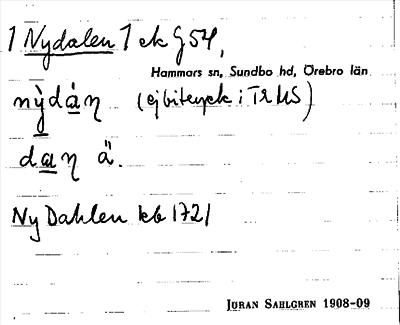 1 Nydalen 1 ek G 54,
Hammars sn, Sundbo hd, Örebro län
nỳdáŋ (ej bitryck i TRUS)
daŋ ä.
Ny Dahlen kb 1721
JÖRAN SAHLGREN 1908-09